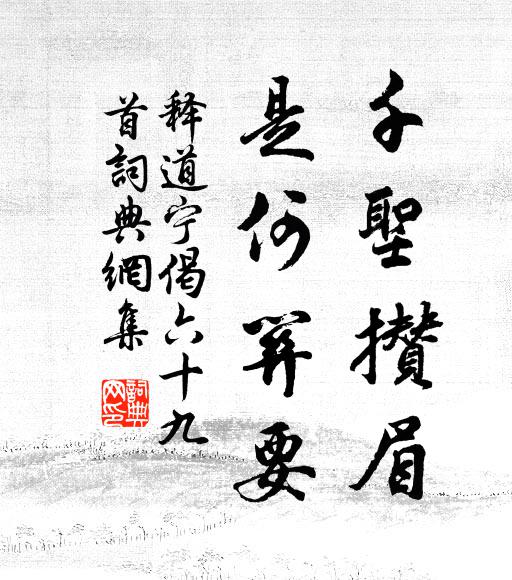 千聖攢眉
是何關要
释道宁偈六十九
首詞典網集
詞典
网印